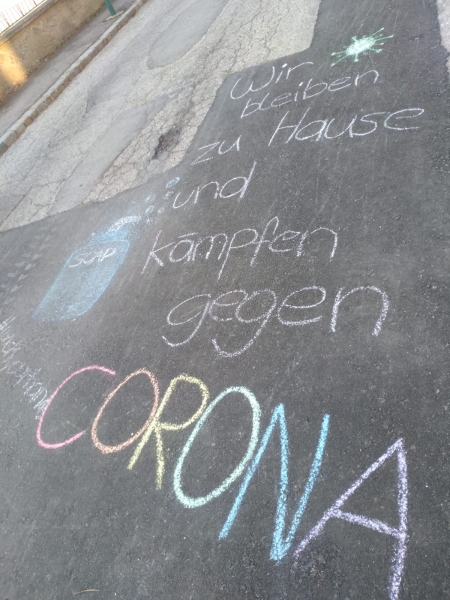 Wir
bleiben
zu Hause
und
kämpfen
gegen
CORONA
Soap